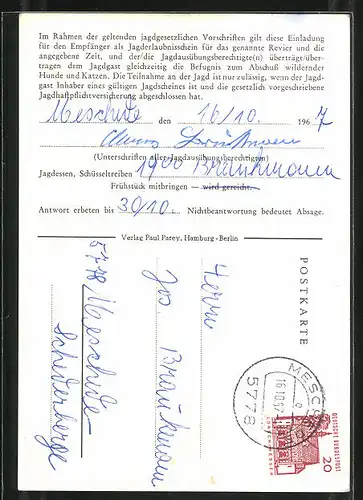 Im Rahmen der geltenden jagdgesetzlichen Vorschriften gilt diese Einladung
für den Empfänger als Jagderlaubnisschein für das genannte Revier und die
angegebene Zeit, und der/die Jagdausübungsberechtigte(n) überträgt/über-
tragen dem Jagdgast gleichzeitig die Befugnis zum Abschuß wildernder
Hunde und Katzen. Die Teilnahme an der Jagd ist nur zulässig, wenn der Jagd-
gast Inhaber eines gültigen Jagdscheines ist und die gesetzlich vorgeschriebene
Jagdhaftpflichtversicherung abgeschlossen hat.
Meschede den 16/10. 1967
(Unterschriften aller Jagdausübungsberechtigten)
Jagdessen, Schüsseltreiben 1900 Braukmann
Frühstück mitbringen – wird gereicht.
Antwort erbeten bis 30/10. Nichtbeantwortung bedeutet Absage.
Verlag Paul Parey, Hamburg-Berlin
POSTKARTE
Herrn
Jos. Braukmann
5778 Meschede-
MESCHEDE
16.10.67
5778
DEUTSCHE BUNDESPOST
20